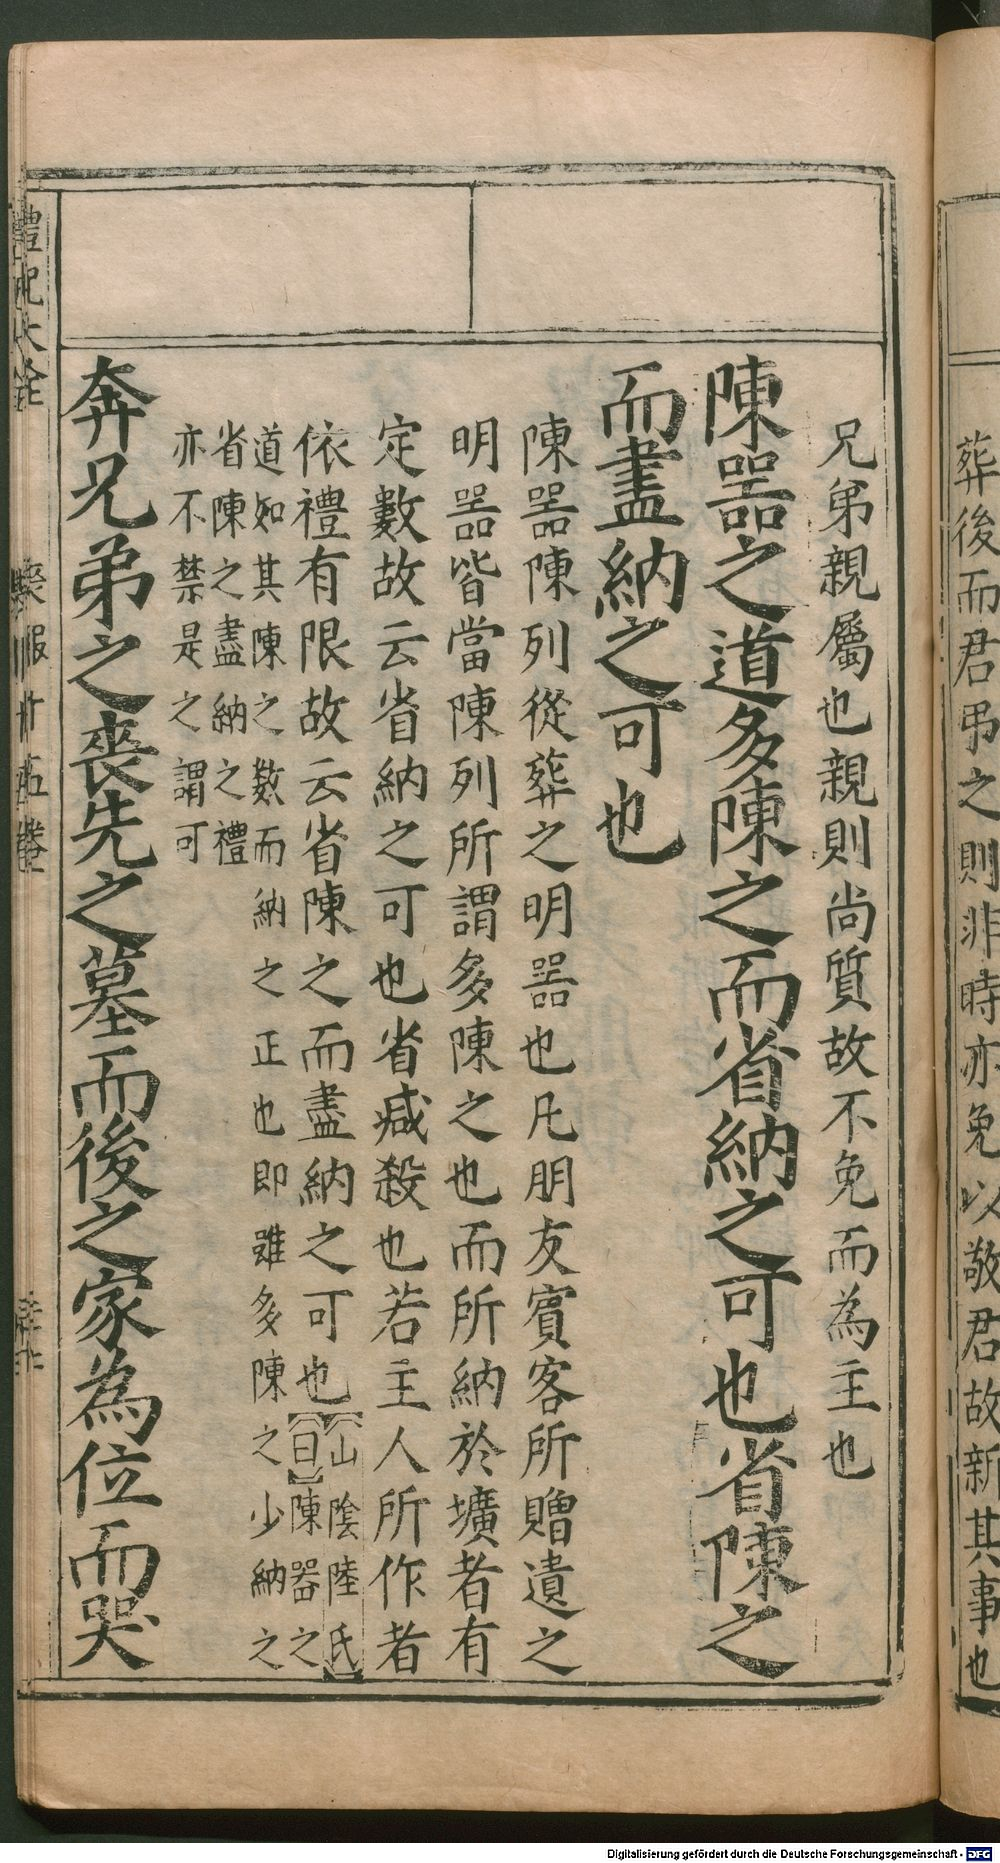 葬後而君弔之則非時亦免以敬君故新其事也
兄弟親屬也親則尚質故不免而為主也
陳器之道多陳之而省納之可也省陳之
而盡納之可也
陳器陳列從葬之明器也凡朋友賓客所贈遺之
明器皆當陳列所謂多陳之也而所納於壙者有
定數故云省納之可也省減殺也若主人所作者
依禮有限故云省陳之而盡納之可也
山陰陸氏
曰陳器之
道如其陳之數而納之正也即雖多陳之少納之
省陳之盡納之禮
亦不禁是之謂可
奔兄弟之喪先之墓而後之家為位而哭
禮記大全
喪服
Digitalisierung gefördert durch die Deutsche Forschungsgemeinschaft - DFG